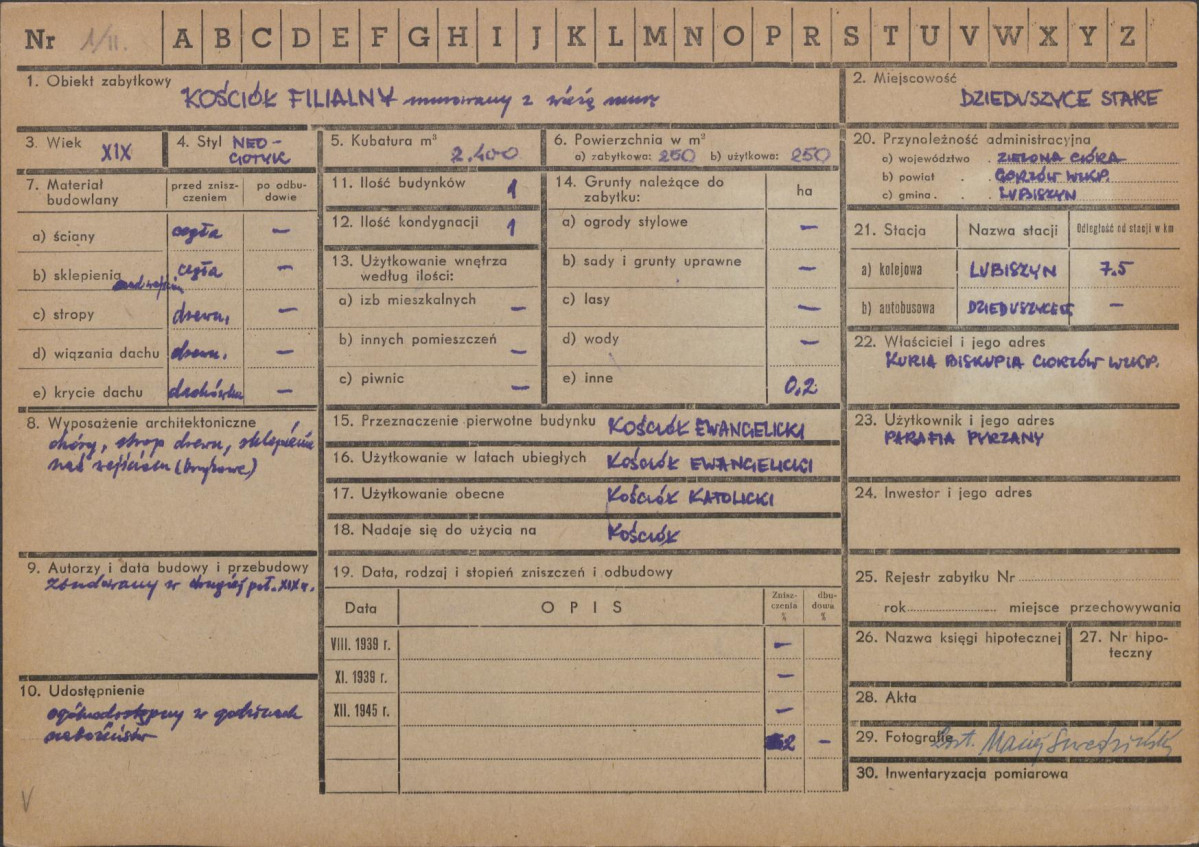 Nr 1/II. A B C D E F G H I J K L M N O P R S T U V W X Y Z
1. Obiekt zabytkowy
KOŚCIÓŁ FILIALNY murowany z wieżą mur.
2. Miejscowość
DZIEDUSZYCE STARE
3. Wiek XIX
4. Styl NEO-
GOTYK
5. Kubatura m³
2.400
6. Powierzchnia w m²
a) zabytkowa: 250 b) użytkowa: 250
7. Materiał budowlany
przed zniszczeniem
po odbudowie
a) ściany cegła –
b) sklepienia cegła –
nad wejściem
c) stropy drewn. –
d) wiązania dachu drewn. –
e) krycie dachu dachówka –
8. Wyposażenie architektoniczne
chóry, strop drewn, sklepienie
nad wejściem
9. Autorzy i data budowy i przebudowy
Zbudowany w drugiej poł. XIX w.
10. Udostępnienie
ogólnodostępny w godzinach
nabożeństw
11. Ilość budynków 1
12. Ilość kondygnacji 1
13. Użytkowanie wnętrza
według ilości:
a) izb mieszkalnych –
b) innych pomieszczeń –
c) piwnic –
14. Grunty należące do
zabytku:
ha
a) ogrody stylowe –
b) sady i grunty uprawne –
c) lasy –
d) wody –
e) inne 0,2
15. Przeznaczenie pierwotne budynku KOŚCIÓŁ EWANGELICKI
16. Użytkowanie w latach ubiegłych KOŚCIÓŁ EWANGELICKI
17. Użytkowanie obecne KOŚCIÓŁ KATOLICKI
18. Nadaje się do użycia na KOŚCIÓŁ
19. Data, rodzaj i stopień zniszczeń i odbudowy
Data OPIS Zniszczenia % dbudowa %
VIII. 1939 r. –
XI. 1939 r. –
XII. 1945 r. –
2 –
20. Przynależność administracyjna
a) województwo . ZIELONA GÓRA
b) powiat . . GORZÓW WLKP.
c) gmina . . LUBISZYN
21. Stacja Nazwa stacji Odległość od stacji w km
a) kolejowa LUBISZYN 7.5
b) autobusowa DZIEDUSZYCE ST. –
22. Właściciel i jego adres
KURIA BISKUPIA GORZÓW WLKP.
23. Użytkownik i jego adres
PARAFIA PYRZANY
24. Inwestor i jego adres
25. Rejestr zabytku Nr
rok miejsce przechowywania
26. Nazwa księgi hipotecznej
27. Nr hipo-
teczny
28. Akta
29. Fotografie Maciej
30. Inwentaryzacja pomiarowa